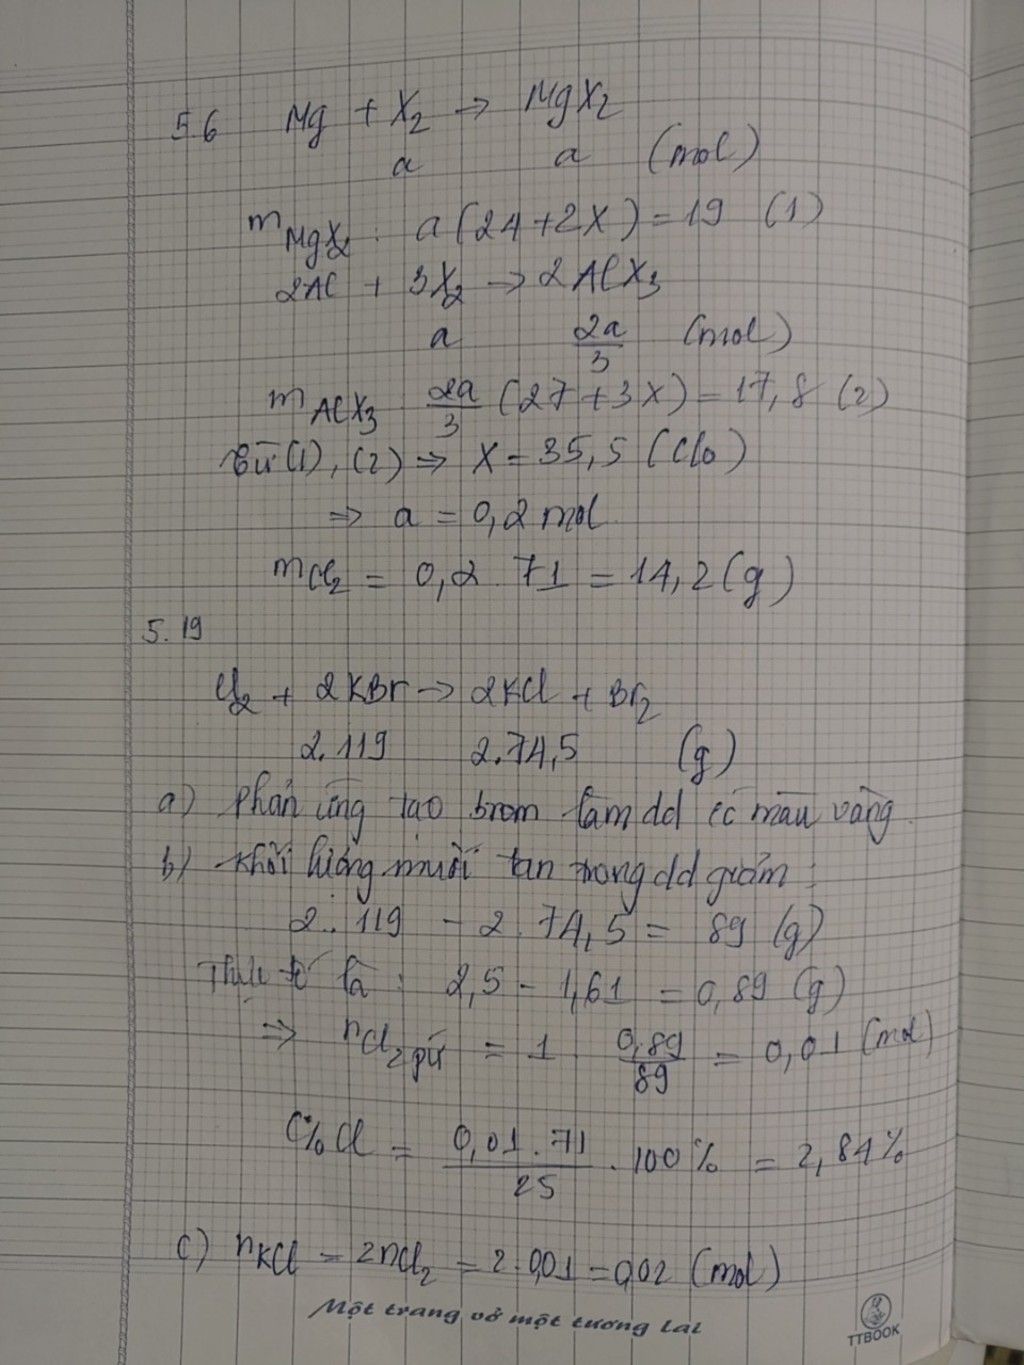 5.6 Mg + X₂ → MgX₂
a a (mol)
m MgX₂ : a(24+2X) = 19 (1)
2Al + 3X₂ → 2AlX₃
a 2a/3 (mol)
m AlX₃ 2a/3 (27+3X) = 17,8 (2)
Từ (1), (2) ⇒ X = 35,5 (Clo)
⇒ a = 0,2 mol
mCl₂ = 0,2 . 71 = 14,2 (g)
5.19
Cl₂ + 2KBr → 2KCl + Br₂
2.119 2.74,5 (g)
a) Phản ứng tạo brom làm dd có màu vàng.
b) Khối lượng muối tan trong dd giảm :
2.119 - 2.74,5 = 89 (g)
Thực tế là : 2,5 - 1,61 = 0,89 (g)
⇒ nCl₂ pứ = 1 . 0,89/89 = 0,01 (mol)
C% Cl = 0,01.71/25 . 100% = 2,84%
c) nKCl = 2nCl₂ = 2.0,01 = 0,02 (mol)
Một trang vở một tương lai
TTBOOK